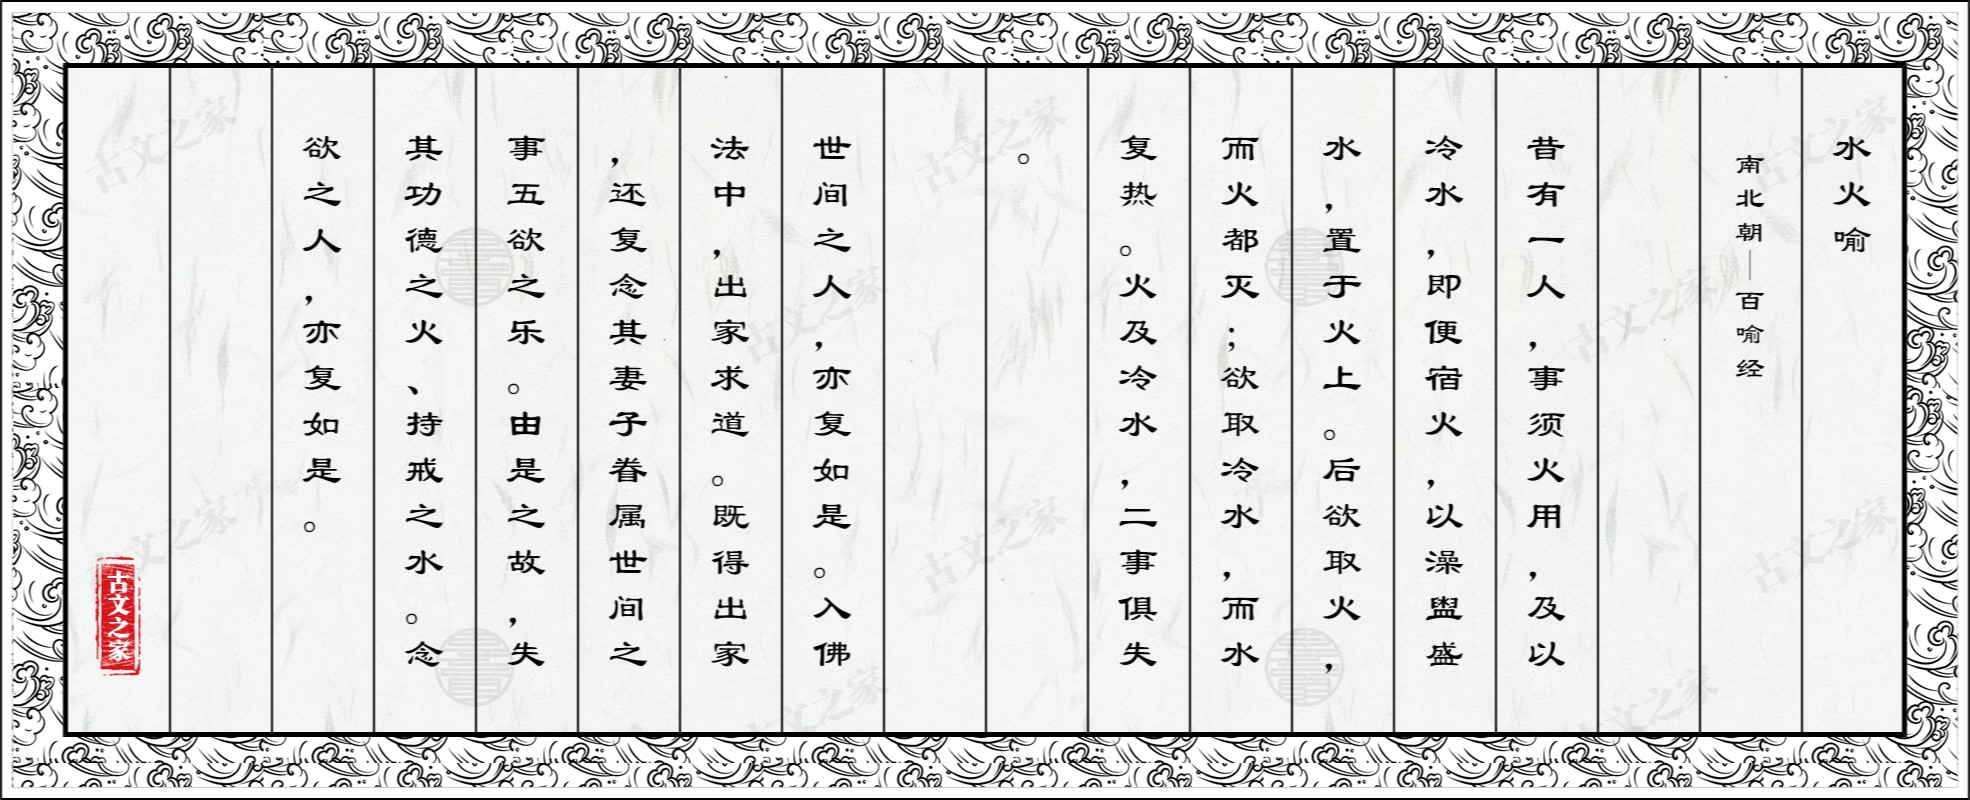 水火喻
南北朝—百喻经
昔有一人，事须火用，及以
冷水，即便宿火，以澡盥盛
水，置于火上。后欲取火，
而火都灭；欲取冷水，而水
复热。火及冷水，二事俱失
。
世间之人，亦复如是。入佛
法中，出家求道。既得出家
，还复念其妻子眷属世间之
事五欲之乐。由是之故，失
其功德之火、持戒之水。念
欲之人，亦复如是。
古文之家